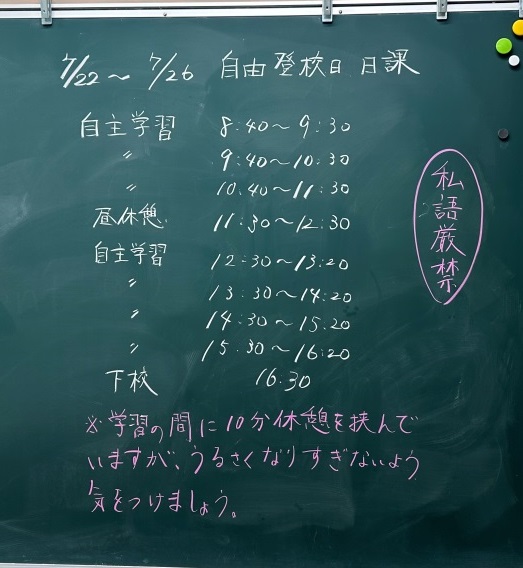 7/22～7/26 自由登校日 日課
自主学習 8:40～9:30
〃 9:40～10:30
〃 10:40～11:30
昼休憩 11:30～12:30
自主学習 12:30～13:20
〃 13:30～14:20
〃 14:30～15:20
〃 15:30～16:20
下校 16:30
※学習の間に10分休憩を挟んで
いますが、うるさくなりすぎないよう
気をつけましょう。
私語厳禁